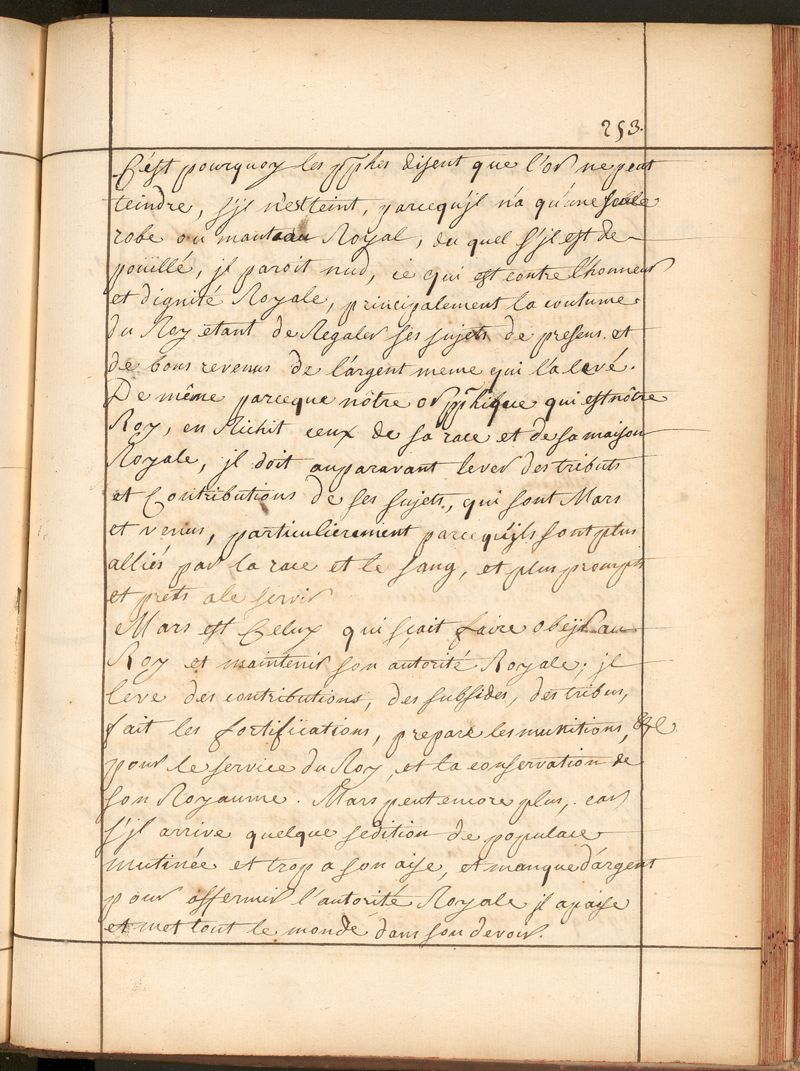 253.
C'est pourquoy les pphes disent que l'or ne peut
teindre, s'jl n'est teint, parcequ'jl n'a qu'une seule
robe ou manteau Royal, du quel s'jl est de-
poüillé, jl paroit nud, ce qui est contre l'honneur
et dignité Royale, principalement la coutume
du Roy etant de Regaler ses sujets de presens et
de bons revenus de l'argent meme qui l'a levé.
De même parceque nôtre or pphique qui est nôtre
Roy, en Richit ceux de sa race et de sa maison
Royale, jl doit auparavant lever des tributs
et Contributions de ses sujets, qui sont Mars
et venus, particulierement parcequ'jls sont plus
alliés par la race et le sang, et plus prompts
et prets a le servir
Mars est Celuy qui scait faire obejr au
Roy et maintenir son autorité Royale; jl
leve des contributions, des subsides, des tribus,
fait les fortifications, prepare les munitions, &c
pour le service du Roy, et la conservation de
son Royaume. Mars peut encore plus, car
s'jl arrive quelque sedition de populace
mutinée et trop a son aise, et manque d'argent
pour affermir l'autorité Royale jl apaise
et met tout le monde dans son devoir.